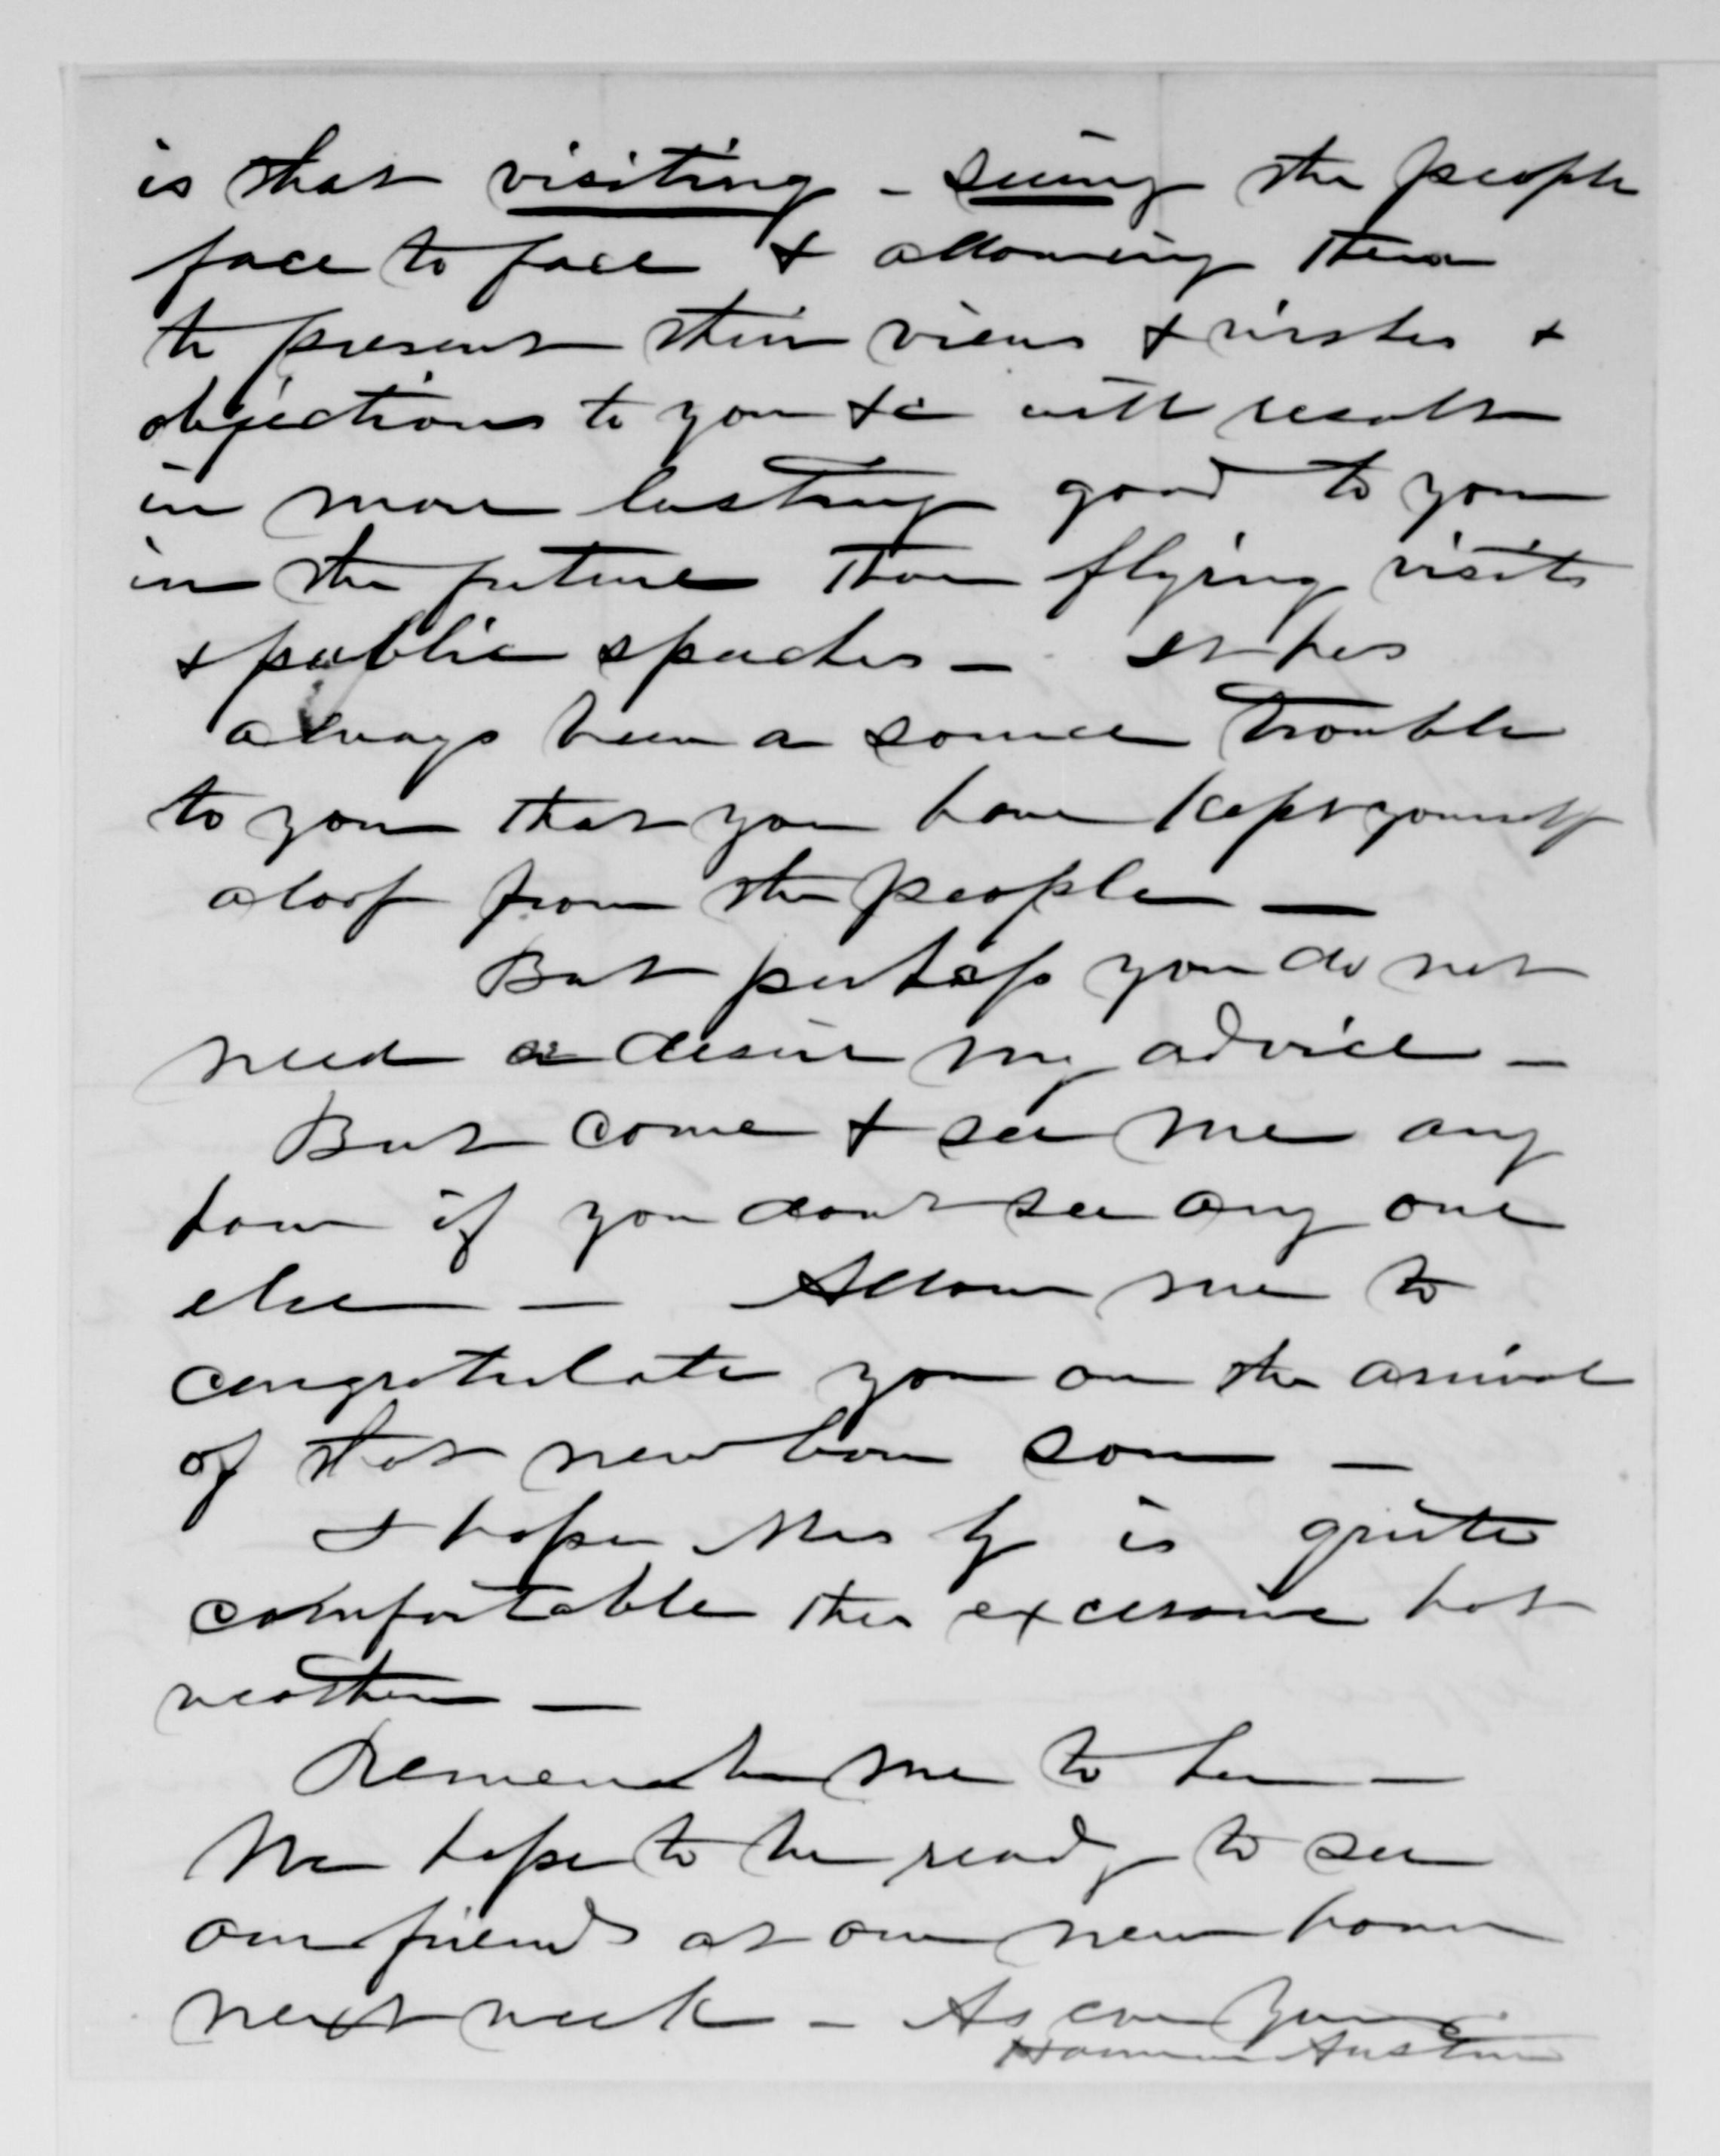 is that visiting - seeing the people
face to face & allowing them
to present their views & wishes &
objections to you &c will result
in more lasting good to you
in the future than flying visits
& public speeches — It has
always been a source trouble
to you that you have kept yourself
aloof from the people —
But perhaps you do not
need or desire my advice —
But come & see me any
how if you dont see any one
else — Allow me to
congratulate you on the arrival
of that new born son —
I hope Mrs G is quite
comfortable this excessive hot
weather —
Remember me to her —
We hope to be ready to see
our friends at our new home
next week — As ever Yours
Harmon Austin